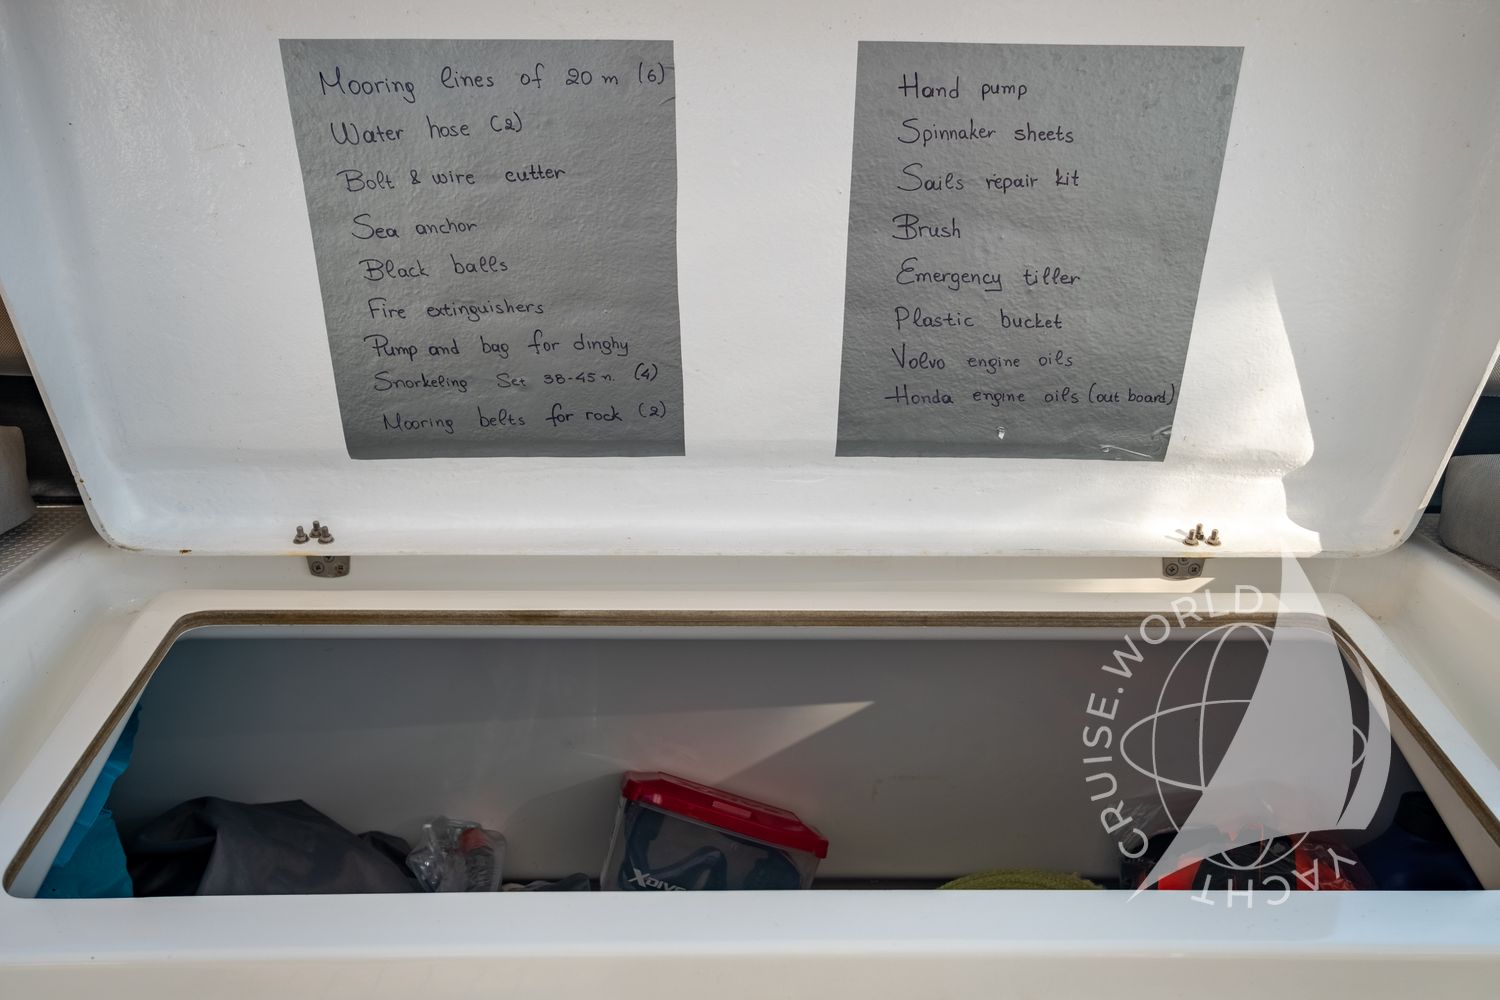 Mooring lines of 20 m (6)
Water hose (2)
Bolt & wire cutter
Sea anchor
Black balls
Fire extinguishers
Pump and bag for dinghy
Snorkeling Set 38-45 n. (4)
Mooring belts for rock (2)
Hand pump
Spinnaker sheets
Sails repair kit
Brush
Emergency tiller
Plastic bucket
Volvo engine oils
Honda engine oils (out board)
XDIVE
YACHT CRUISE.WORLD